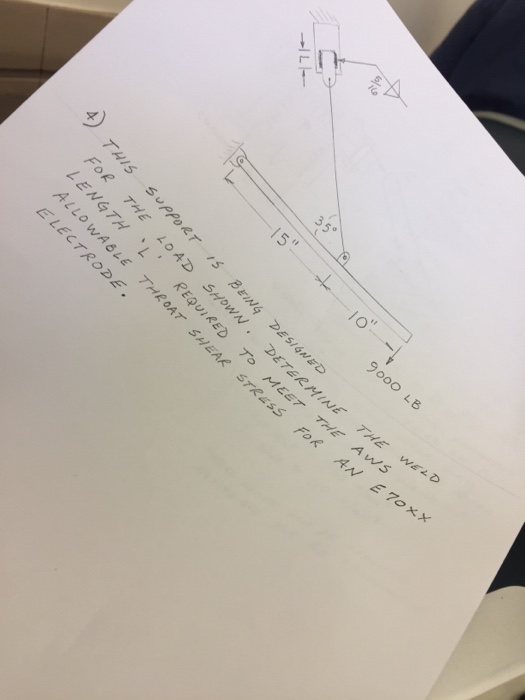 5/16
L
35°
15"
10"
9000 LB
4) THIS SUPPORT IS BEING DESIGNED
FOR THE LOAD SHOWN. DETERMINE THE WELD
LENGTH 'L' REQUIRED TO MEET THE AWS
ALLOWABLE THROAT SHEAR STRESS FOR AN E70XX
ELECTRODE.